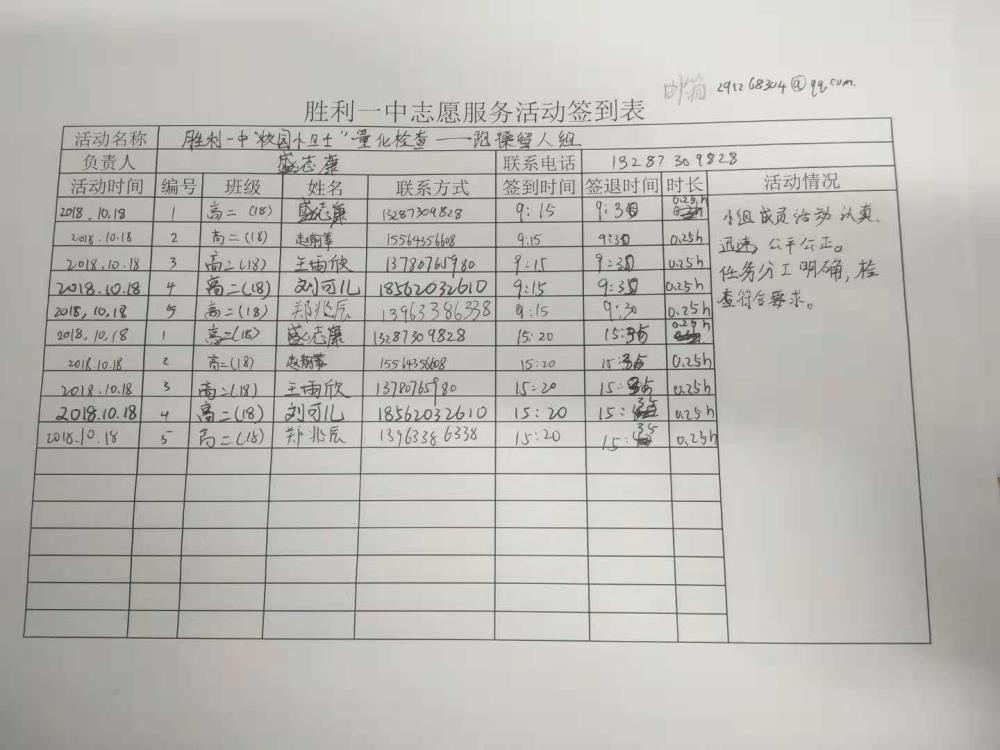 邮箱 291268304@qq.com.
胜利一中志愿服务活动签到表
活动名称 胜利一中"校园小卫士"量化检查——跑操留人组
负责人 盛志康 联系电话 13287309828
活动时间 编号 班级 姓名 联系方式 签到时间 签退时间 时长 活动情况
2018.10.18 1 高二(18) 盛志康 13287309828 9:15 9:30 0.25h
2018.10.18 2 高二(18) 15564356608 9:15 9:30 0.25h
2018.10.18 3 高二(18) 王雨欣 13780765980 9:15 9:30 0.25h
2018.10.18 4 高二(18) 刘可儿 18562032610 9:15 9:30 0.25h
2018.10.18 5 高二(18) 郑兆辰 13963386338 9:15 9:30 0.25h
2018.10.18 1 高二(18) 盛志康 13287309828 15:20 15:35 0.25h
2018.10.18 2 高二(18) 15564356608 15:20 15:35 0.25h
2018.10.18 3 高二(18) 王雨欣 13780765980 15:20 15:35 0.25h
2018.10.18 4 高二(18) 刘可儿 18562032610 15:20 15:35 0.25h
2018.10.18 5 高二(18) 郑兆辰 13963386338 15:20 15:35 0.25h
小组成员活动认真、
迅速,公平公正。
任务分工明确,检
查符合要求。